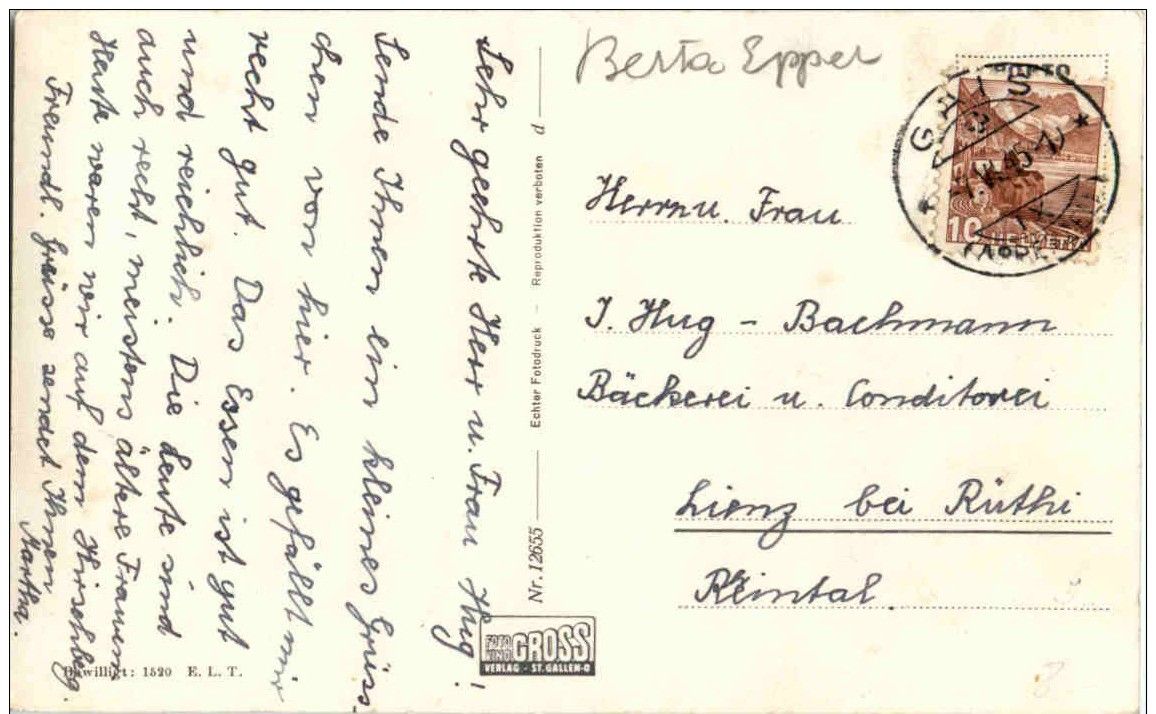 Sehr geehrte Herr u. Frau Hug!
Sende Ihnen ein kleines Grüss-
chen von hier. Es gefällt mir
recht gut. Das Essen ist gut
und reichlich. Die Leute sind
auch recht, meistens ältere Frauen.
Heute waren wir auf dem Hirschberg.
Freundl. Grüsse sendet Ihnen
Martha.
Bewilligt: 1520 E. L. T.
Nr. 12655 — Echter Fotodruck – Reproduktion verboten d
FOTO
KINO
GROSS
VERLAG - ST. GALLEN-O
Berta Epper
GAIS
10 HELVETIA
Herrn u. Frau
J. Hug - Bachmann
Bäckerei u. Conditorei
Lienz bei Rüthi
Rheintal